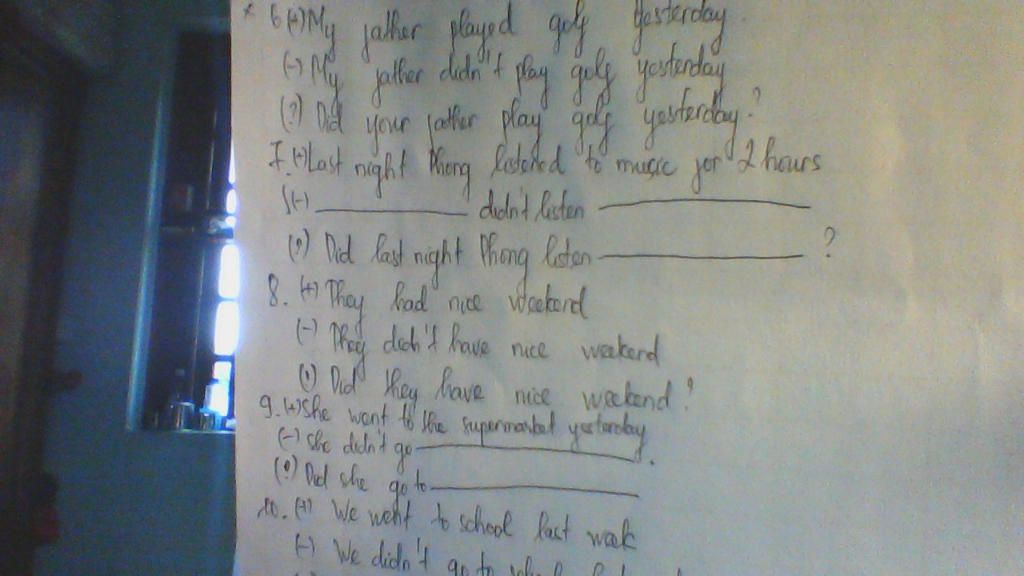 6 (+) My father played golf yesterday.
(-) My father didn't play golf yesterday
(?) Did your father play golf yesterday?
7. (+) Last night Phong listened to music for 2 hours
(-) ________ didn't listen ________
(?) Did last night Phong listen ________ ?
8. (+) They had nice weekend
(-) They didn't have nice weekend
(?) Did they have nice weekend?
9. (+) She went to the supermarket yesterday.
(-) She didn't go ________.
(?) Did she go to ________
10. (+) We went to school last week
(-) We didn't go to school